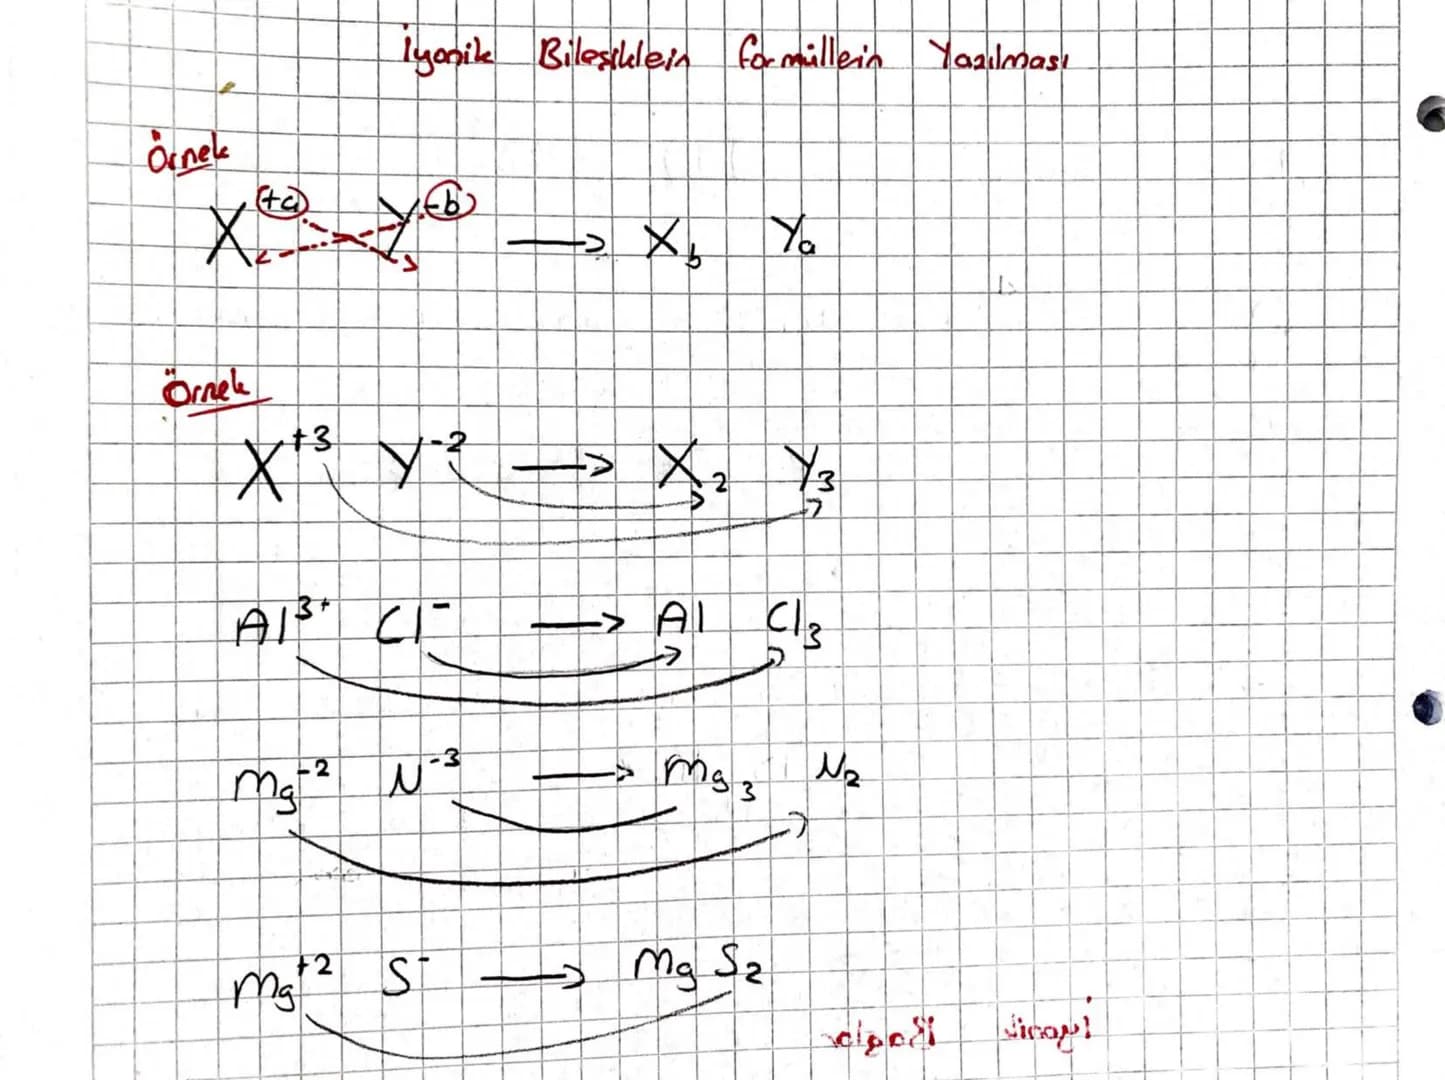 İyonik Bileşiklein formüllein Yazılması
Örnek
X⁺ᵃ Y⁻ᵇ → X_b Yₐ
Örnek
X⁺³ Y⁻² → X₂ Y₃
Al³⁺ Cl⁻ → Al Cl₃
Mg⁻² N⁻³ → Mg₃ N₂
Mg⁺² S⁻ → Mg S₂